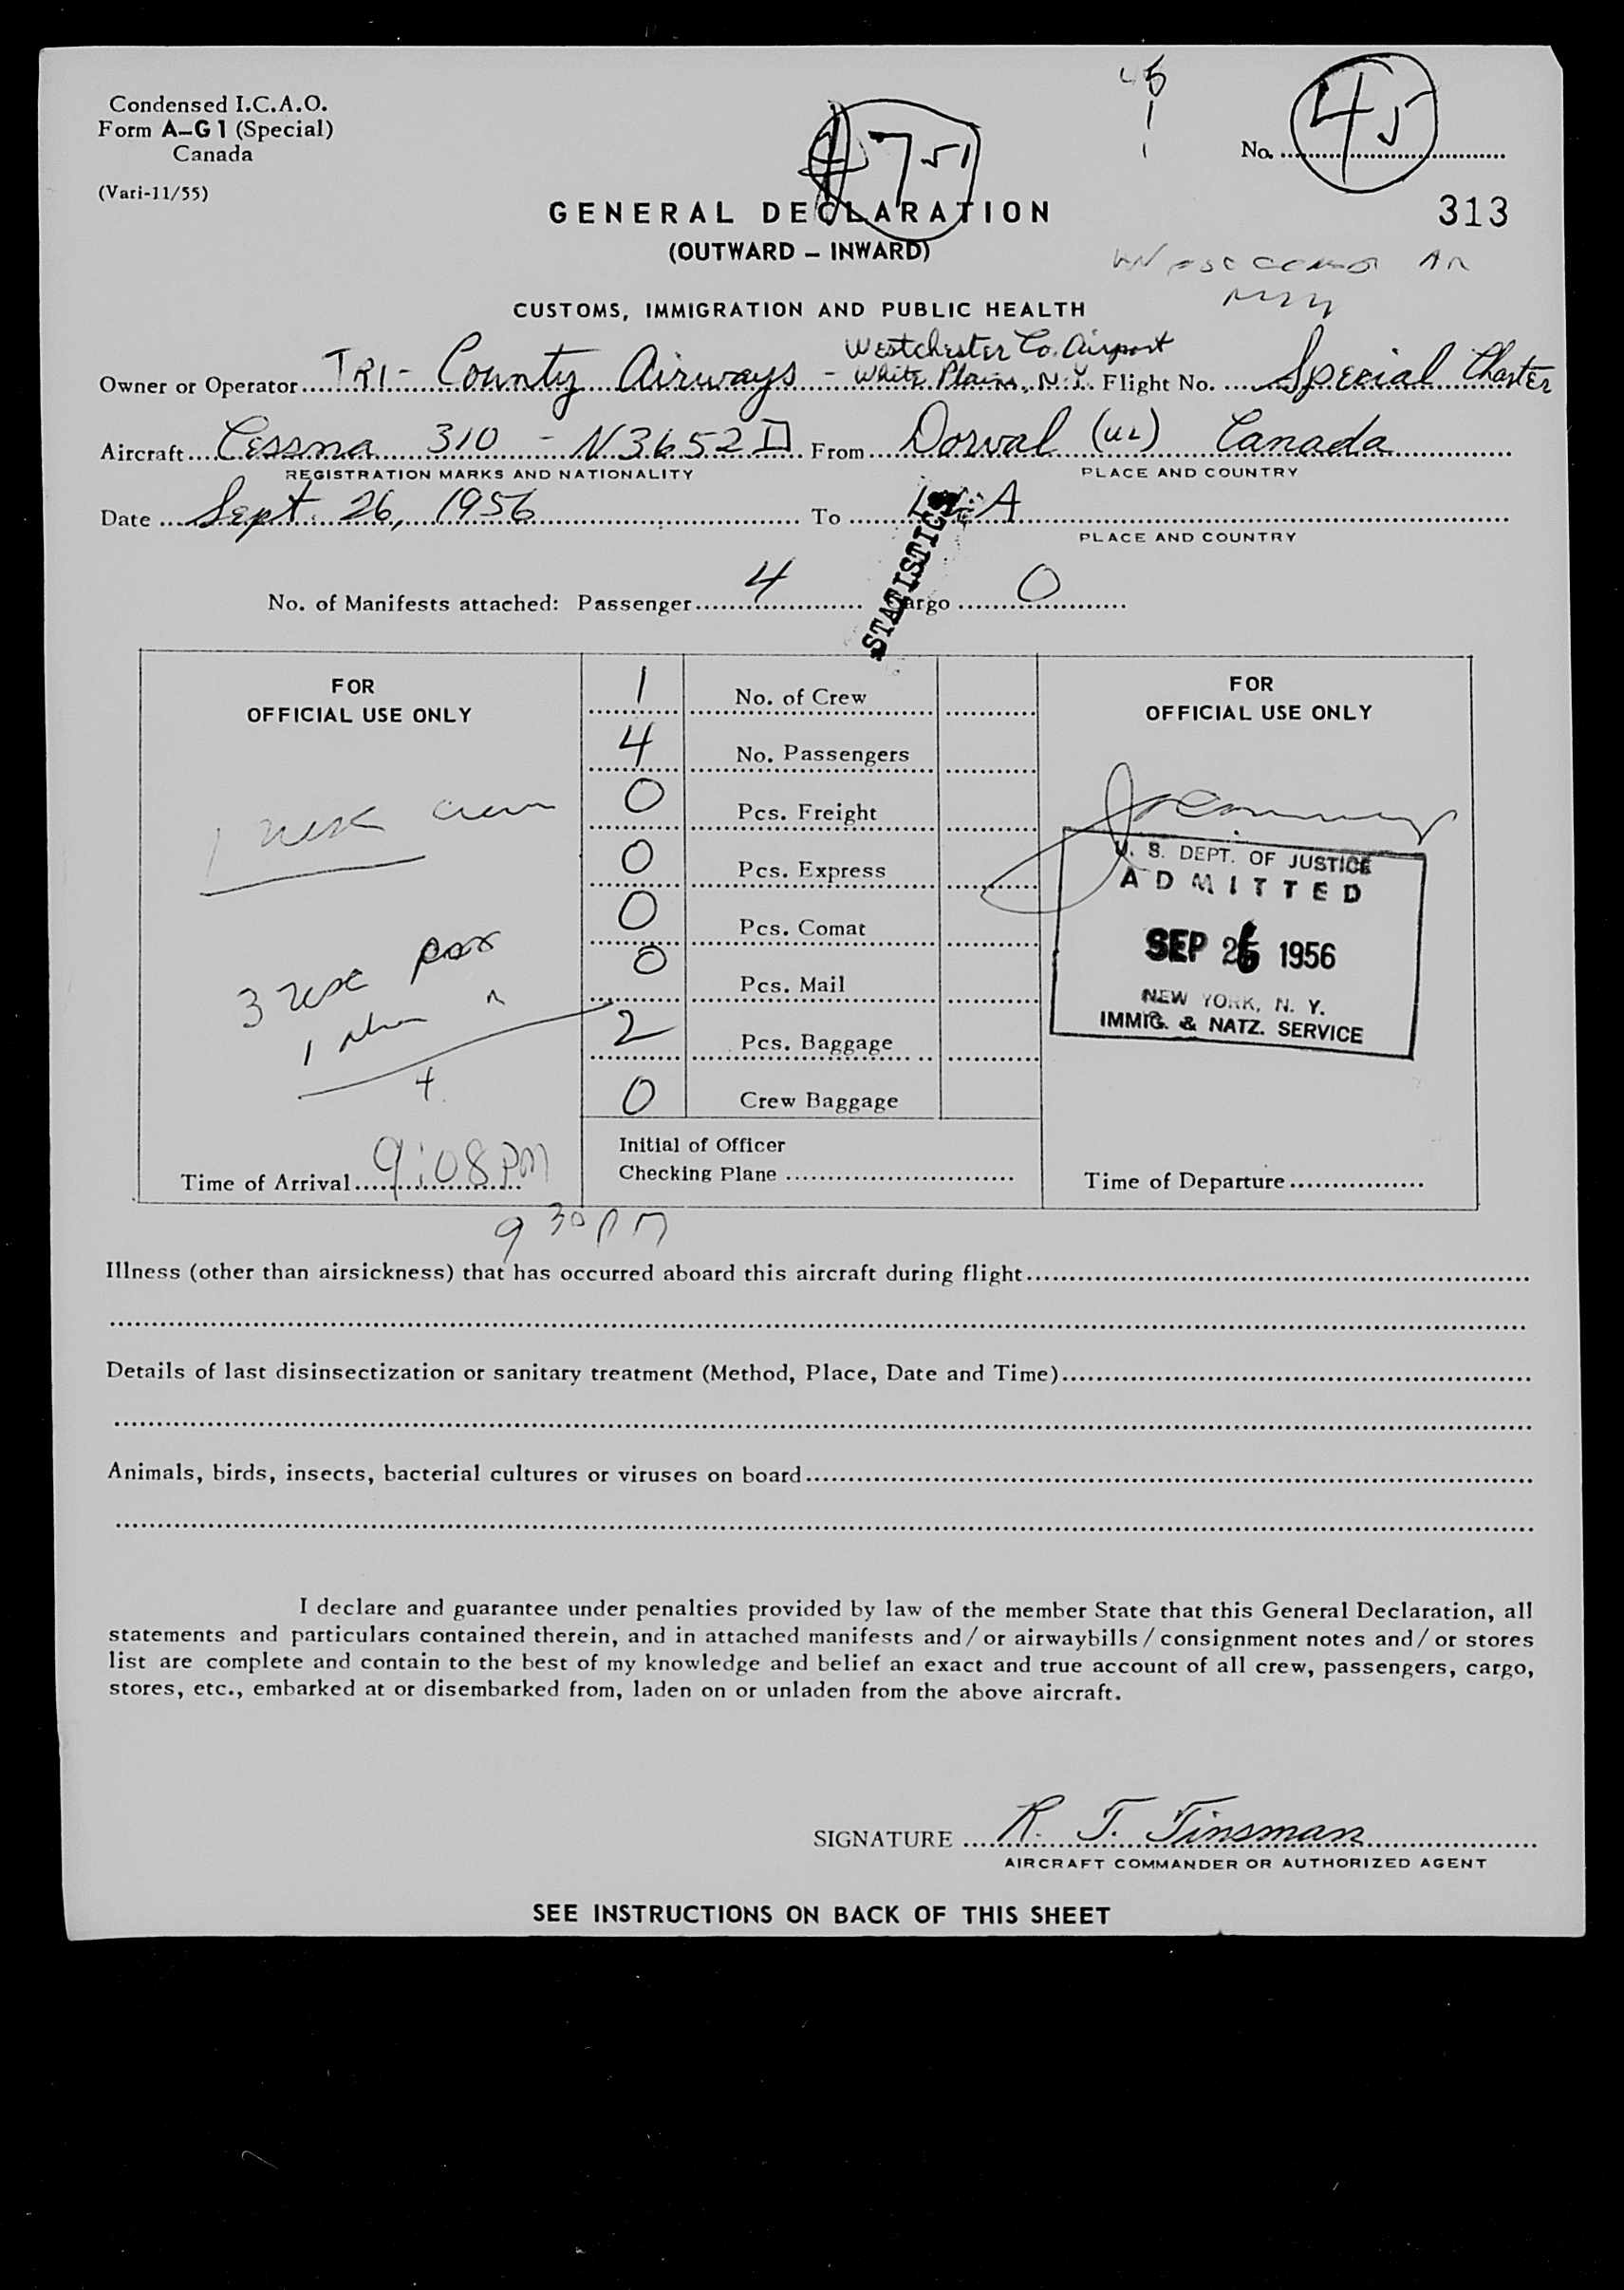 Condensed I.C.A.O.
Form A–G1 (Special)
Canada
(Vari-11/55)
751
45
No. 45
313
GENERAL DECLARATION
(OUTWARD – INWARD)
CUSTOMS, IMMIGRATION AND PUBLIC HEALTH
Westchester Co. Airport
Owner or Operator TRI- County Airways - White Plains, N.Y. Flight No. Special Charter
Aircraft Cessna 310 - N3652D From Dorval (UL) Canada
REGISTRATION MARKS AND NATIONALITY PLACE AND COUNTRY
Date Sept. 26, 1956 To
PLACE AND COUNTRY
STATISTICS
No. of Manifests attached: Passenger 4 Cargo 0
FOR
OFFICIAL USE ONLY
1 crew
3 pax
1
4
Time of Arrival 9:08 PM
9 30 PM
1 No. of Crew
4 No. Passengers
0 Pcs. Freight
0 Pcs. Express
0 Pcs. Comat
0 Pcs. Mail
2 Pcs. Baggage
0 Crew Baggage
Initial of Officer
Checking Plane
FOR
OFFICIAL USE ONLY
U. S. DEPT. OF JUSTICE
ADMITTED
SEP 26 1956
NEW YORK, N. Y.
IMMIG. & NATZ. SERVICE
Time of Departure
Illness (other than airsickness) that has occurred aboard this aircraft during flight
Details of last disinsectization or sanitary treatment (Method, Place, Date and Time)
Animals, birds, insects, bacterial cultures or viruses on board
I declare and guarantee under penalties provided by law of the member State that this General Declaration, all
statements and particulars contained therein, and in attached manifests and/or airwaybills/consignment notes and/or stores
list are complete and contain to the best of my knowledge and belief an exact and true account of all crew, passengers, cargo,
stores, etc., embarked at or disembarked from, laden on or unladen from the above aircraft.
SIGNATURE R. T. Tinsman
AIRCRAFT COMMANDER OR AUTHORIZED AGENT
SEE INSTRUCTIONS ON BACK OF THIS SHEET